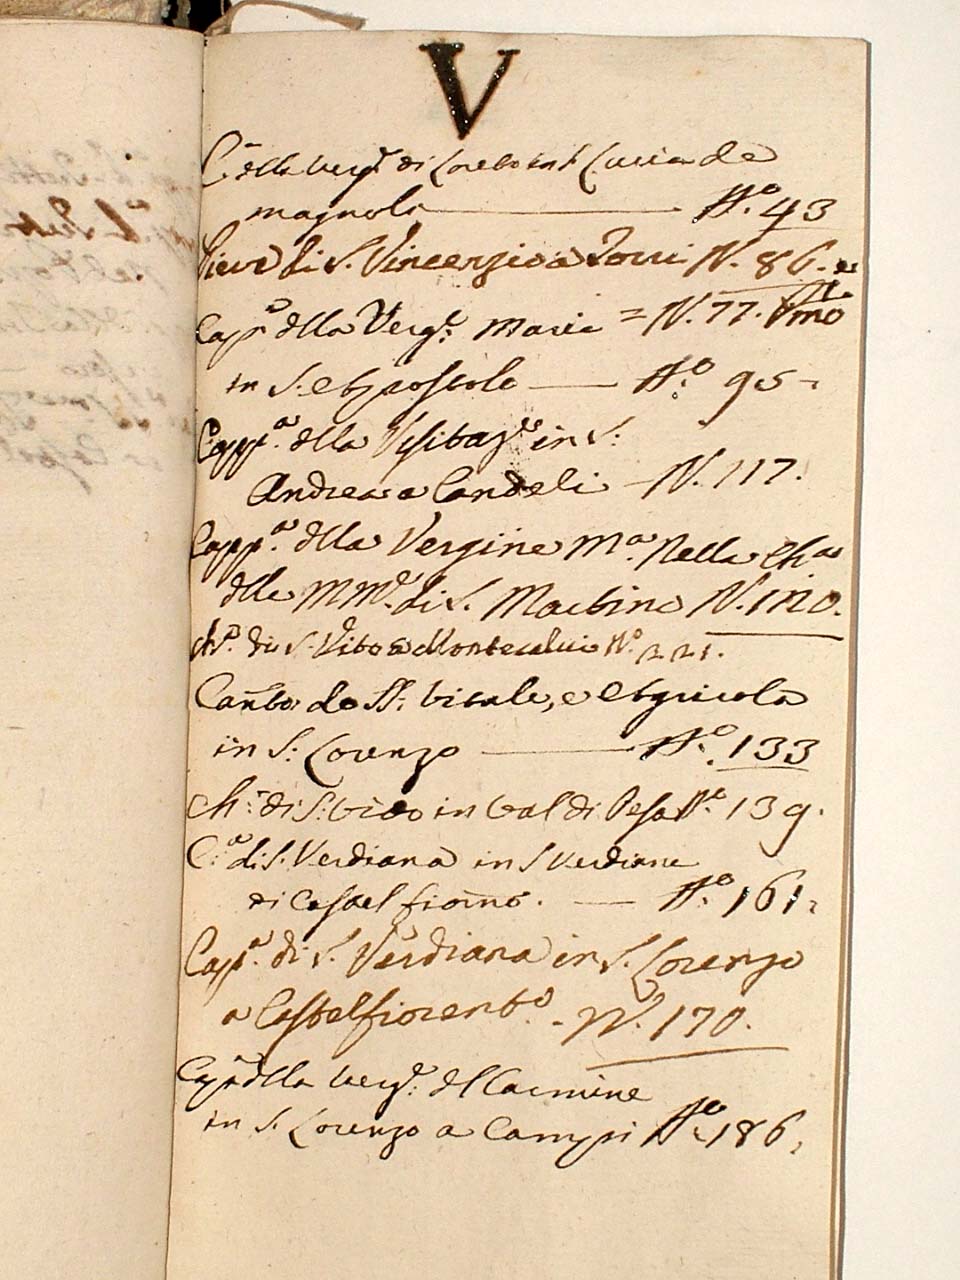 V
C. della Verg.e di Loreto in S. Lucia de
magnoli N.o 43
Pieve di S. Vincenzio a Torri N. 86.
Capp.a dlla Verg.e Maria = N. 77.
in S. Apostolo N.o 95
Capp.a dlla Visitaz.e in S.
Andrea a Candeli N. 117.
Capp.a dlla Vergine M.a Nella Ch.a
dlle MM.e di S. Martino N. 120.
di S. Vito a Montecalvi N.o 221.
Canto de SS. Vitale, e Agricola
in S. Lorenzo N.o 133
Ch.a di S. Vito in Val di Pesa N.o 139.
C.a di S. Verdiana in S. Verdiana
di Castel fior.no N.o 161
Capp.a di S. Verdiana in S. Lorenzo
a Castelfiorent.o N. 170.
Cap.a dlla Verg.e dl Carmine
in S. Lorenzo a Campi N.o 186